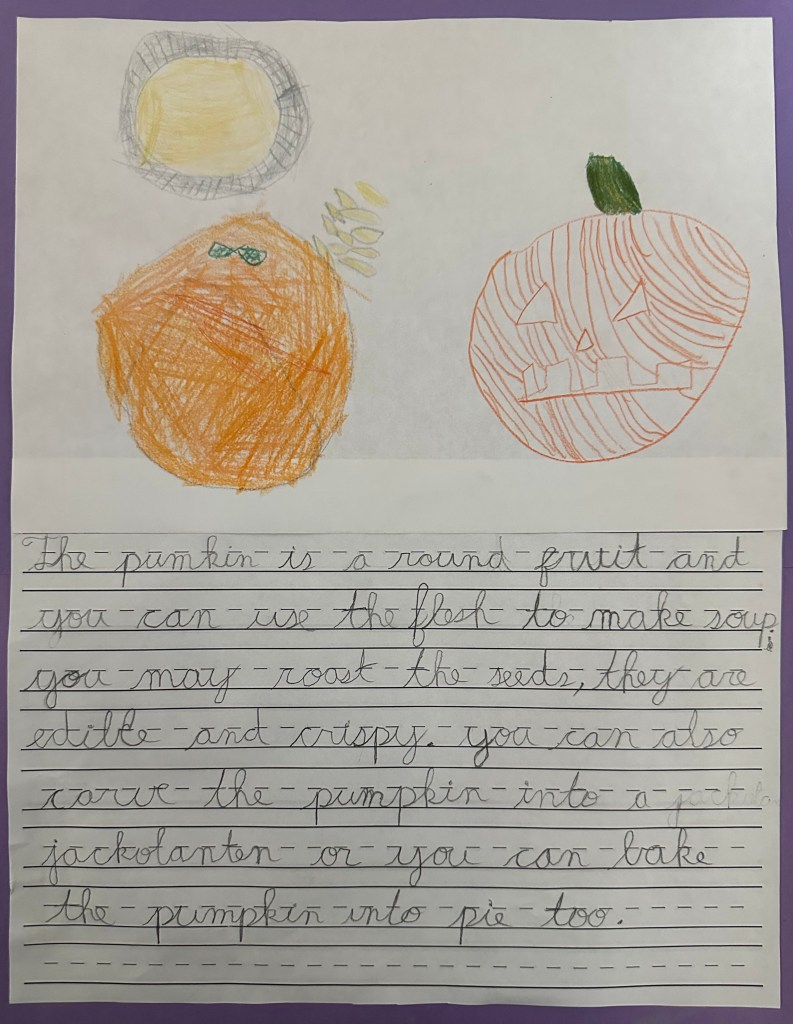 The pumkin is a round fruit and
you can use the flesh to make soup.
you may roast the seeds, they are
edible and crispy. you can also
carve the pumpkin into a
jackolanten or you can bake
the pumpkin into pie too.